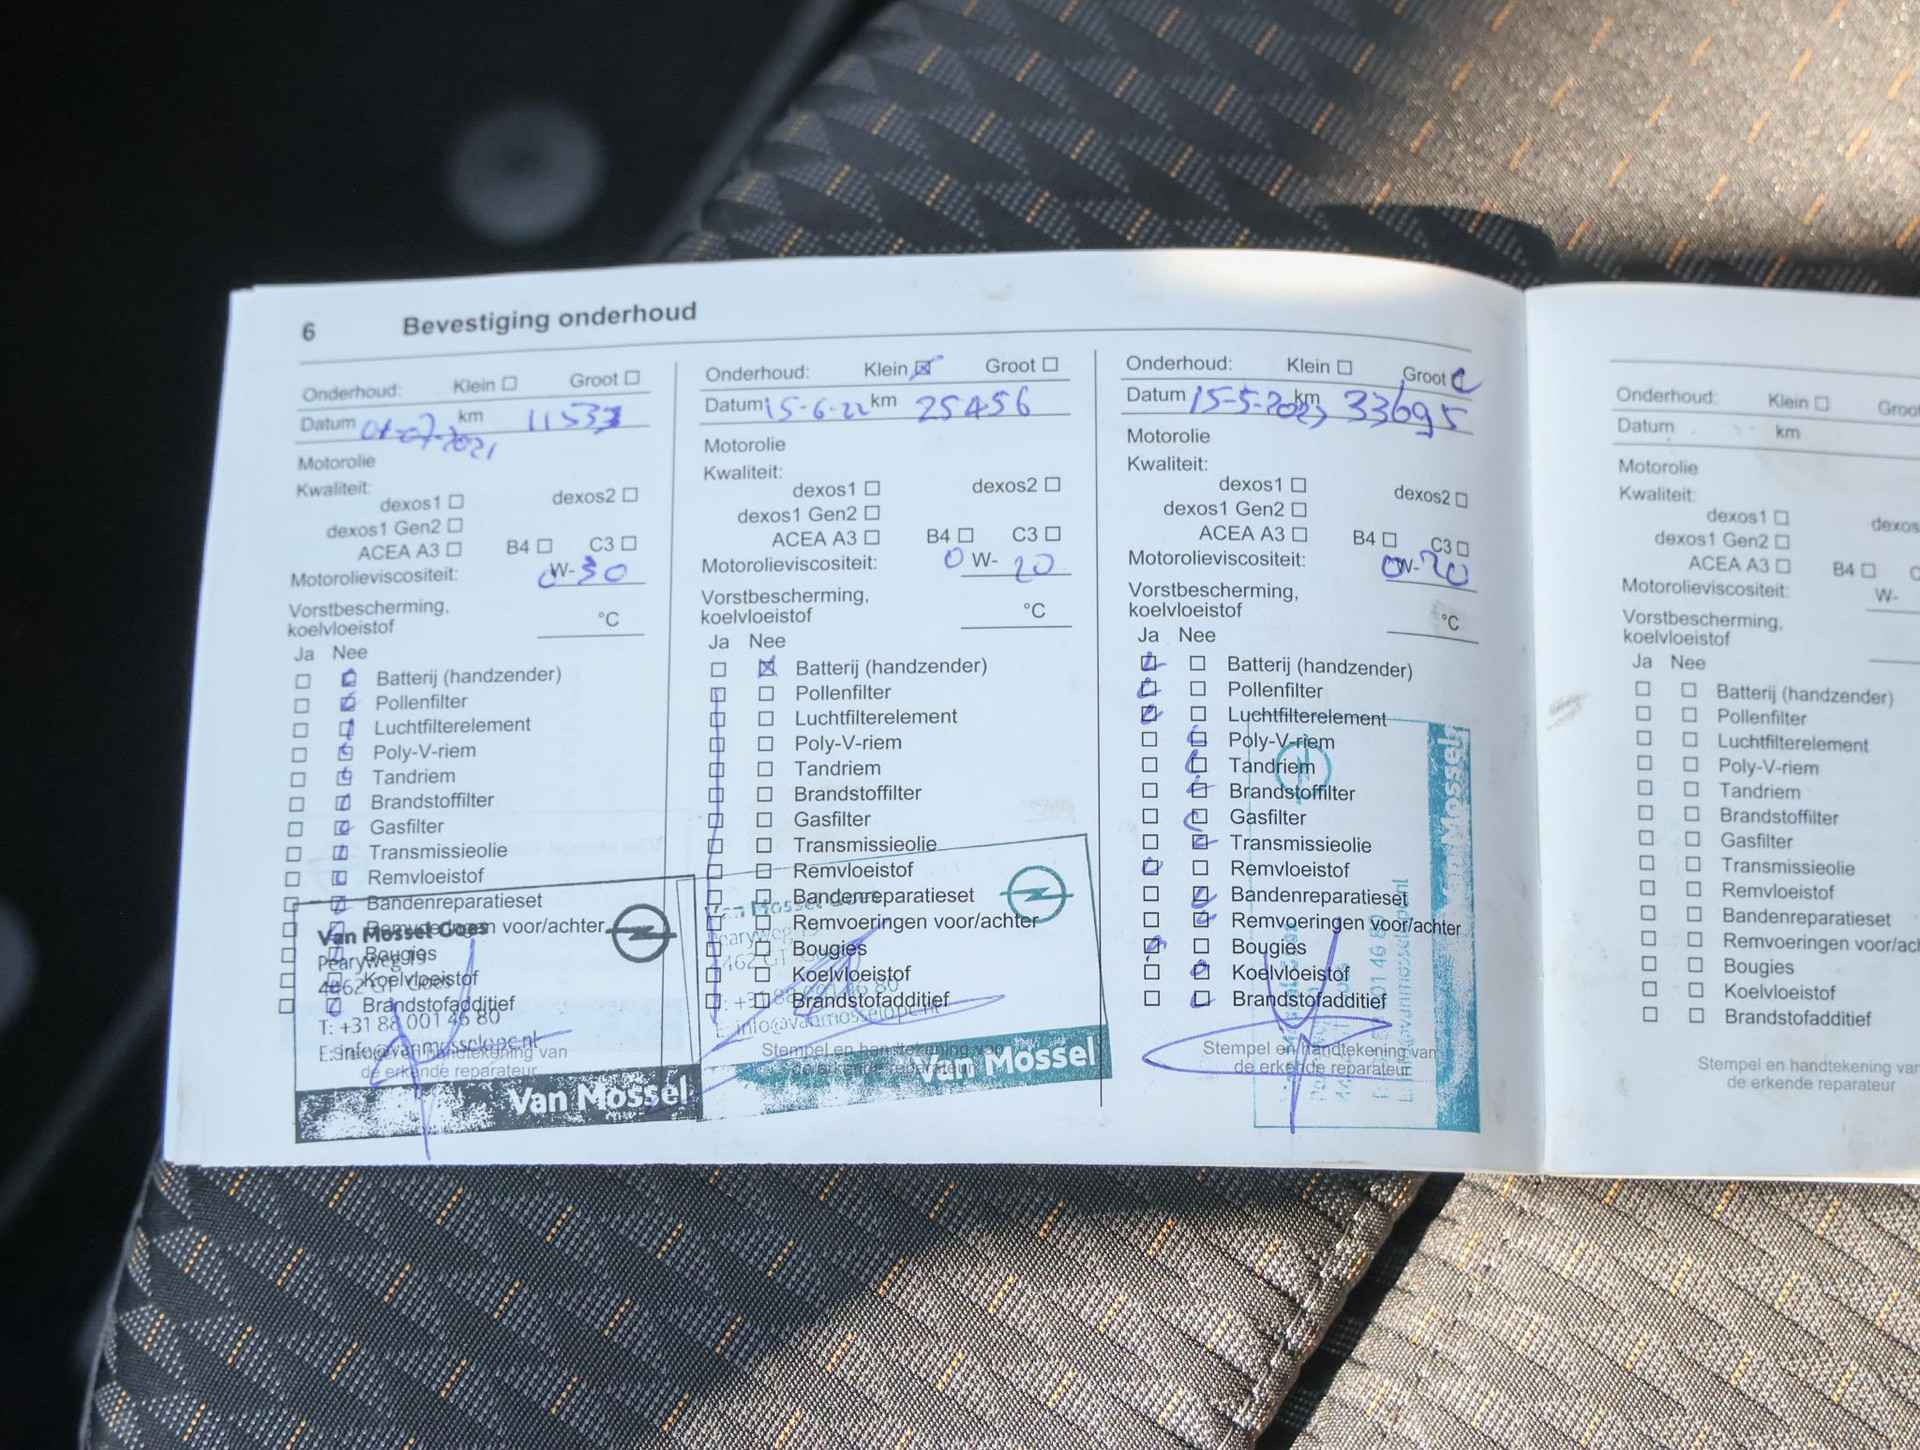 6 Bevestiging onderhoud
Onderhoud: Klein Groot
Datum 01-07-2021 km 11533
Motorolie
Kwaliteit:
dexos1 dexos2
dexos1 Gen2
ACEA A3 B4 C3
Motorolieviscositeit: 0 W-30
Vorstbescherming,
koelvloeistof °C
Ja Nee
Batterij (handzender)
Pollenfilter
Luchtfilterelement
Poly-V-riem
Tandriem
Brandstoffilter
Gasfilter
Transmissieolie
Remvloeistof
Bandenreparatieset
Remvoeringen voor/achter
Bougies
Koelvloeistof
Brandstofadditief
Stempel en handtekening van
de erkende reparateur
Van Mossel Goes
Pearyweg 19
4462 GT Goes
T: +31 88 001 46 80
E: info@vanmosselopel.nl
Van Mossel
Onderhoud: Klein Groot
Datum 15-6-22 km 25456
Motorolie
Kwaliteit:
dexos1 dexos2
dexos1 Gen2
ACEA A3 B4 C3
Motorolieviscositeit: 0 W-20
Vorstbescherming,
koelvloeistof °C
Ja Nee
Batterij (handzender)
Pollenfilter
Luchtfilterelement
Poly-V-riem
Tandriem
Brandstoffilter
Gasfilter
Transmissieolie
Remvloeistof
Bandenreparatieset
Remvoeringen voor/achter
Bougies
Koelvloeistof
Brandstofadditief
Stempel en handtekening van
de erkende reparateur
Van Mossel Goes
Pearyweg 19
4462 GT
T: +31 88 001 46 80
E: info@vanmosselopel.nl
Van Mossel
Onderhoud: Klein Groot
Datum 15-5-2023 km 33695
Motorolie
Kwaliteit:
dexos1 dexos2
dexos1 Gen2
ACEA A3 B4 C3
Motorolieviscositeit: 0W-20
Vorstbescherming,
koelvloeistof °C
Ja Nee
Batterij (handzender)
Pollenfilter
Luchtfilterelement
Poly-V-riem
Tandriem
Brandstoffilter
Gasfilter
Transmissieolie
Remvloeistof
Bandenreparatieset
Remvoeringen voor/achter
Bougies
Koelvloeistof
Brandstofadditief
Stempel en handtekening van
de erkende reparateur
Van Mossel
Onderhoud: Klein Groot
Datum km
Motorolie
Kwaliteit:
dexos1 dexos
dexos1 Gen2
ACEA A3 B4 C
Motorolieviscositeit: W-
Vorstbescherming,
koelvloeistof
Ja Nee
Batterij (handzender)
Pollenfilter
Luchtfilterelement
Poly-V-riem
Tandriem
Brandstoffilter
Gasfilter
Transmissieolie
Remvloeistof
Bandenreparatieset
Remvoeringen voor/ach
Bougies
Koelvloeistof
Brandstofadditief
Stempel en handtekening van
de erkende reparateur